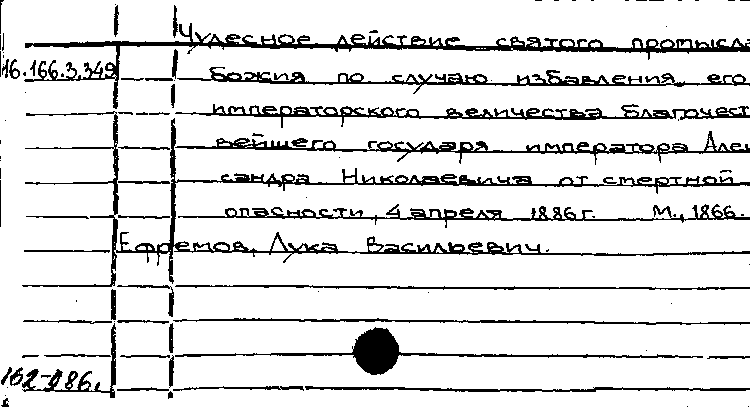 Чудесное действие святого промысла
16.166.3.349 Божия по случаю избавления его
императорского величества благочест
вейшего государя императора Алек
сандра Николаевича от смертной
опасности, 4 апреля 1886 г. М., 1866.
Ефремов, Лука Васильевич.
162-986.